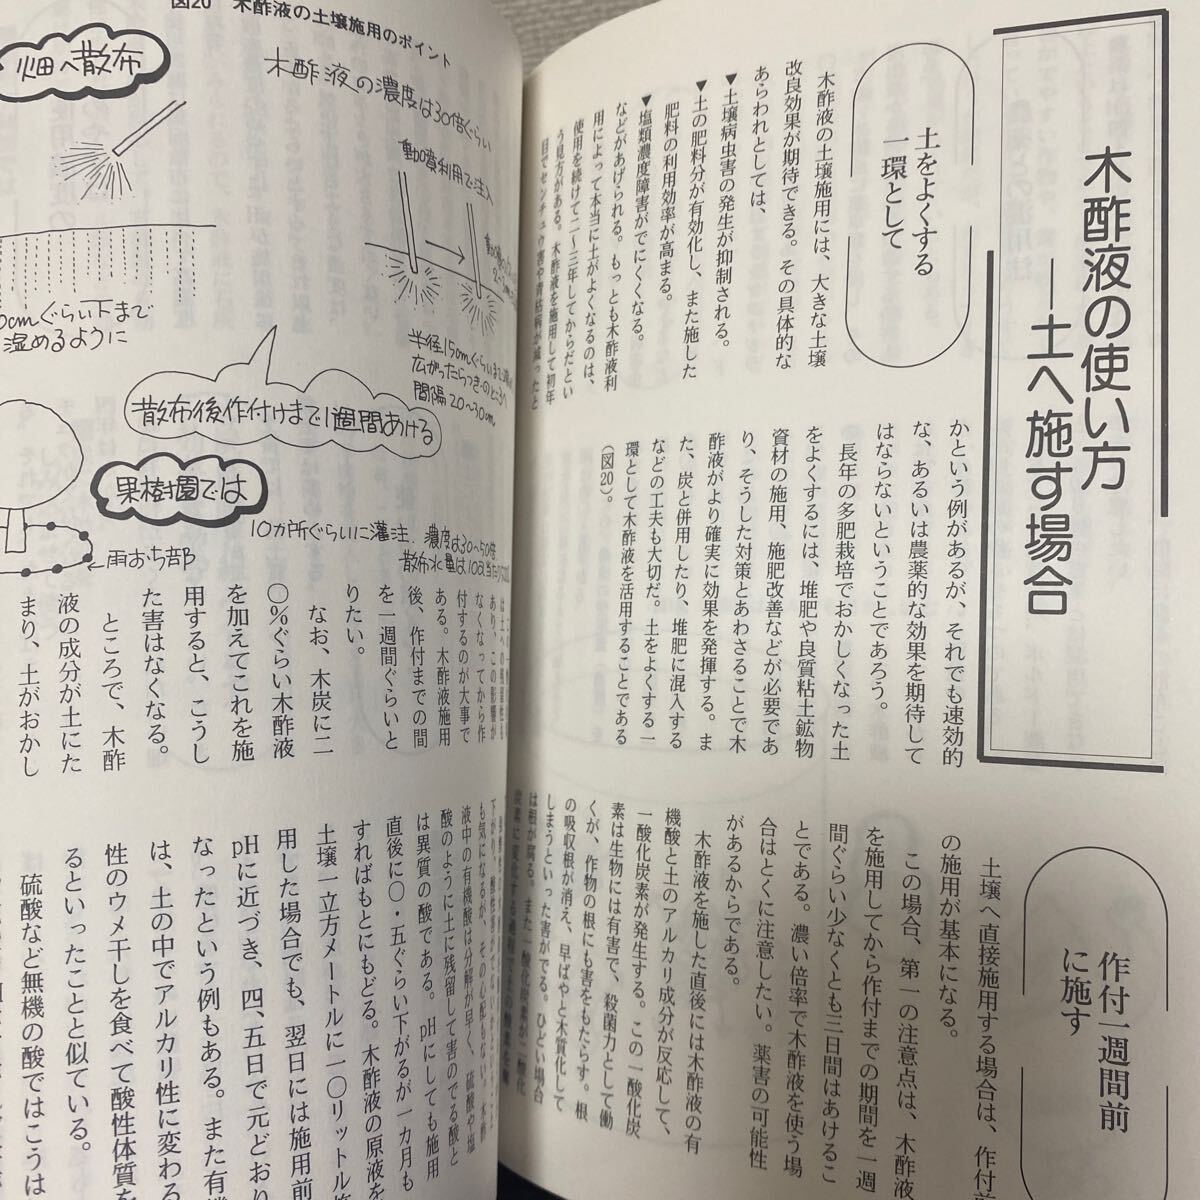 木酢液の使い方
―土へ施す場合
土をよくする
一環として
木酢液の土壌施用には、大きな土壌
改良効果が期待できる。その具体的な
あらわれとしては、
▼土壌病虫害の発生が抑制される。
▼土の肥料分が有効化し、また施した
肥料の利用効率が高まる。
▼塩類濃度障害がでにくくなる。
などがあげられる。もっとも木酢液利
用によって本当に土がよくなるのは、
使用を続けて二〜三年してからだとい
う見方がある。木酢液を施用して初年
目でセンチュウ害や青枯病が減ったと
かという例があるが、それでも速効的
な、あるいは農薬的な効果を期待して
はならないということであろう。
長年の多肥栽培でおかしくなった土
をよくするには、堆肥や良質粘土鉱物
資材の施用、施肥改善などが必要であ
り、そうした対策とあわさることで木
酢液がより確実に効果を発揮する。ま
た、炭と併用したり、堆肥に混入する
などの工夫も大切だ。土をよくする一
環として木酢液を活用することである
(図20)。
作付一週間前
に施す
土壌へ直接施用する場合は、作付前
の施用が基本になる。
この場合、第一の注意点は、木酢液
を施用してから作付までの期間を一週
間ぐらい少なくとも三日間はあけるこ
とである。濃い倍率で木酢液を使う場
合はとくに注意したい。薬害の可能性
があるからである。
木酢液を施した直後には木酢液の有
機酸と土のアルカリ成分が反応して、
一酸化炭素が発生する。この一酸化炭
素は生物には有害で、殺菌力として働
くが、作物の根にも害をもたらす。根
の吸収根が消え、早ばやと木質化して
しまうといった害がでる。ひどい場合
は根が腐る。また一酸化炭素が二酸化
図20 木酢液の土壌施用のポイント
畑へ散布
木酢液の濃度は30倍ぐらい
動噴利用で注入
cmぐらい下まで
湿めるように
半径15cmぐらいまで
広がったらつぎのところへ
間隔20〜30cm
散布後作付けまで1週間あける
果樹園では
10カ所ぐらいに灌注.濃度は30〜50倍
散布水量は10a当たり
雨おち部
なくなってから作
付するのが大事で
ある。木酢液施用
後、作付までの間
を一週間ぐらいと
りたい。
なお、木炭に二
〇%ぐらい木酢液
を加えてこれを施
用すると、こうし
た害はなくなる。
ところで、木酢
液の成分が土にた
まり、土がおかし
も気になるが、その心配もない。木酢
液中の有機酸は分解が早く、硫酸や塩
酸のように土に残留して害のでる酸と
は異質の酸である。pHにしても施用
直後に〇・五ぐらい下がるが一カ月も
すればもとにもどる。木酢液の原液を
土壌一立方メートルに一〇リットル施
用した場合でも、翌日には施用前
pHに近づき、四、五日で元どおり
なったという例もある。また有機
は、土の中でアルカリ性に変わる
性のウメ干しを食べて酸性体質を
るといったことと似ている。
硫酸など無機の酸ではこうは